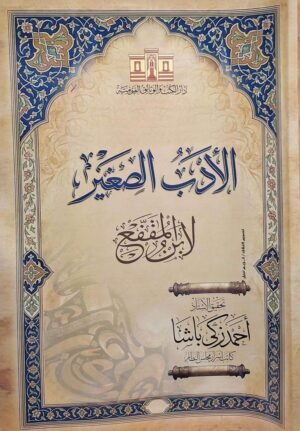 دار الكتب والوثائق القومية
الأدب الصغير
لابن المقفع
تحقيق الأستاذ
أحمد زكي باشا
كاتب أسرار مجلس النظار